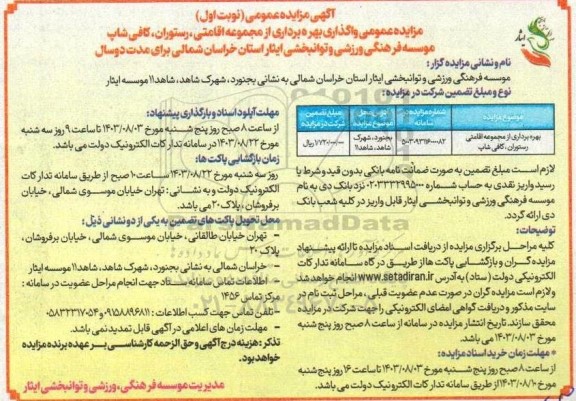 آگهی مزایده عمومی (نوبت اول)
مزایده عمومی واگذاری بهره برداری از مجموعه اقامتی، رستوران، کافی شاپ
موسسه فرهنگی ورزشی و توانبخشی ایثار استان خراسان شمالی برای مدت دوسال
نام و نشانی مزایده گزار:
موسسه فرهنگی ورزشی و توانبخشی ایثار استان خراسان شمالی به نشانی بجنورد، شهرک شاهد، شاهد۱۱ موسسه ایثار
نوع و مبلغ تضمین شرکت در مزایده:
موضوع مزایده
شماره مزایده در سامانه
موضوع مزایده
مبلغ تضمین شرکت در مزایده
بهره برداری از مجموعه اقامتی رستوران، کافی شاپ
بجنورد، شهرک شاهد، شاهد۱۱
ریال
لازم است مبلغ تضمین به صورت ضمانت نامه بانکی بدون قید و شرط یا
رسید واریز نقدی به حساب شماره ۰۲۰۳۳۳۲۹۹۵۰۰۰ نزد بانک دی به نام
موسسه فرهنگی ورزشی و توانبخشی ایثار قابل واریز در کلیه شعب بانک
دی ارائه گردد.
توضیحات:
کلیه مراحل برگزاری مزایده از دریافت اسناد مزایده تا ارائه پیشنهاد
مزایده گران و بازگشایی پاکت ها از طریق در گاه سامانه تدارکات
الکترونیکی دولت (ستاد) به آدرس www.setadiran.ir انجام خواهد شد
و لازم است مزایده گران در صورت عدم عضویت قبلی، مراحل ثبت نام در
سایت مذکور و دریافت گواهی امضای الکترونیکی را جهت شرکت در مزایده
محقق سازند. تاریخ انتشار مزایده در سامانه از ساعت ۸ صبح روز پنج شنبه
مورخ ۱۴۰۳/۰۸/۰۳ می باشد.
* مهلت زمان خرید اسناد مزایده:
از ساعت ۸ صبح روز پنج شنبه مورخ ۱۴۰۳/۰۸/۰۳ تا ساعت ۱۶ روز پنج شنبه
مورخ ۱۴۰۳/۰۸/۱۰ از طریق سامانه تدارکات الکترونیک دولت می باشد.
مهلت آپلود اسناد و بارگذاری پیشنهاد:
از ساعت ۸ صبح روز پنج شنبه مورخ ۱۴۰۳/۰۸/۰۳ تا ساعت ۹ روز سه شنبه
مورخ ۱۴۰۳/۰۸/۲۲ در سامانه تدارکات الکترونیک دولت می باشد.
زمان بازگشایی پاکت ها:
روز سه شنبه مورخ ۱۴۰۳/۰۸/۲۲ ساعت ۱۰ صبح از طریق سامانه تدارکات
الکترونیک دولت و به نشانی: تهران خیابان موسوی شمالی، خیابان
برفروشان، پلاک ۲۰ می باشد.
محل تحویل پاکت های تضمین به یکی از دو نشانی ذیل:
- تهران خیابان طالقانی، خیابان موسوی شمالی، خیابان برفروشان،
پلاک ۲۰
- خراسان شمالی به نشانی بجنورد، شهرک شاهد، شاهد۱۱ موسسه ایثار
- اطلاعات تماس سامانه ستاد جهت انجام مراحل عضویت در سامانه:
مرکز تماس ۱۴۵۶
- تلفن تماس جهت کسب اطلاعات: ۰۹۱۵۸۸۹۶۸۱۱ و ۰۵۸۳۲۳۱۷۰۵۴
- مهلت زمان های اعلامی در آگهی قابل تمدید نمی باشد.
تذکر: هزینه درج آگهی و حق الزحمه کارشناسی بر عهده برنده مزایده
خواهد بود.
مدیریت موسسه فرهنگی، ورزشی و توانبخشی ایثار